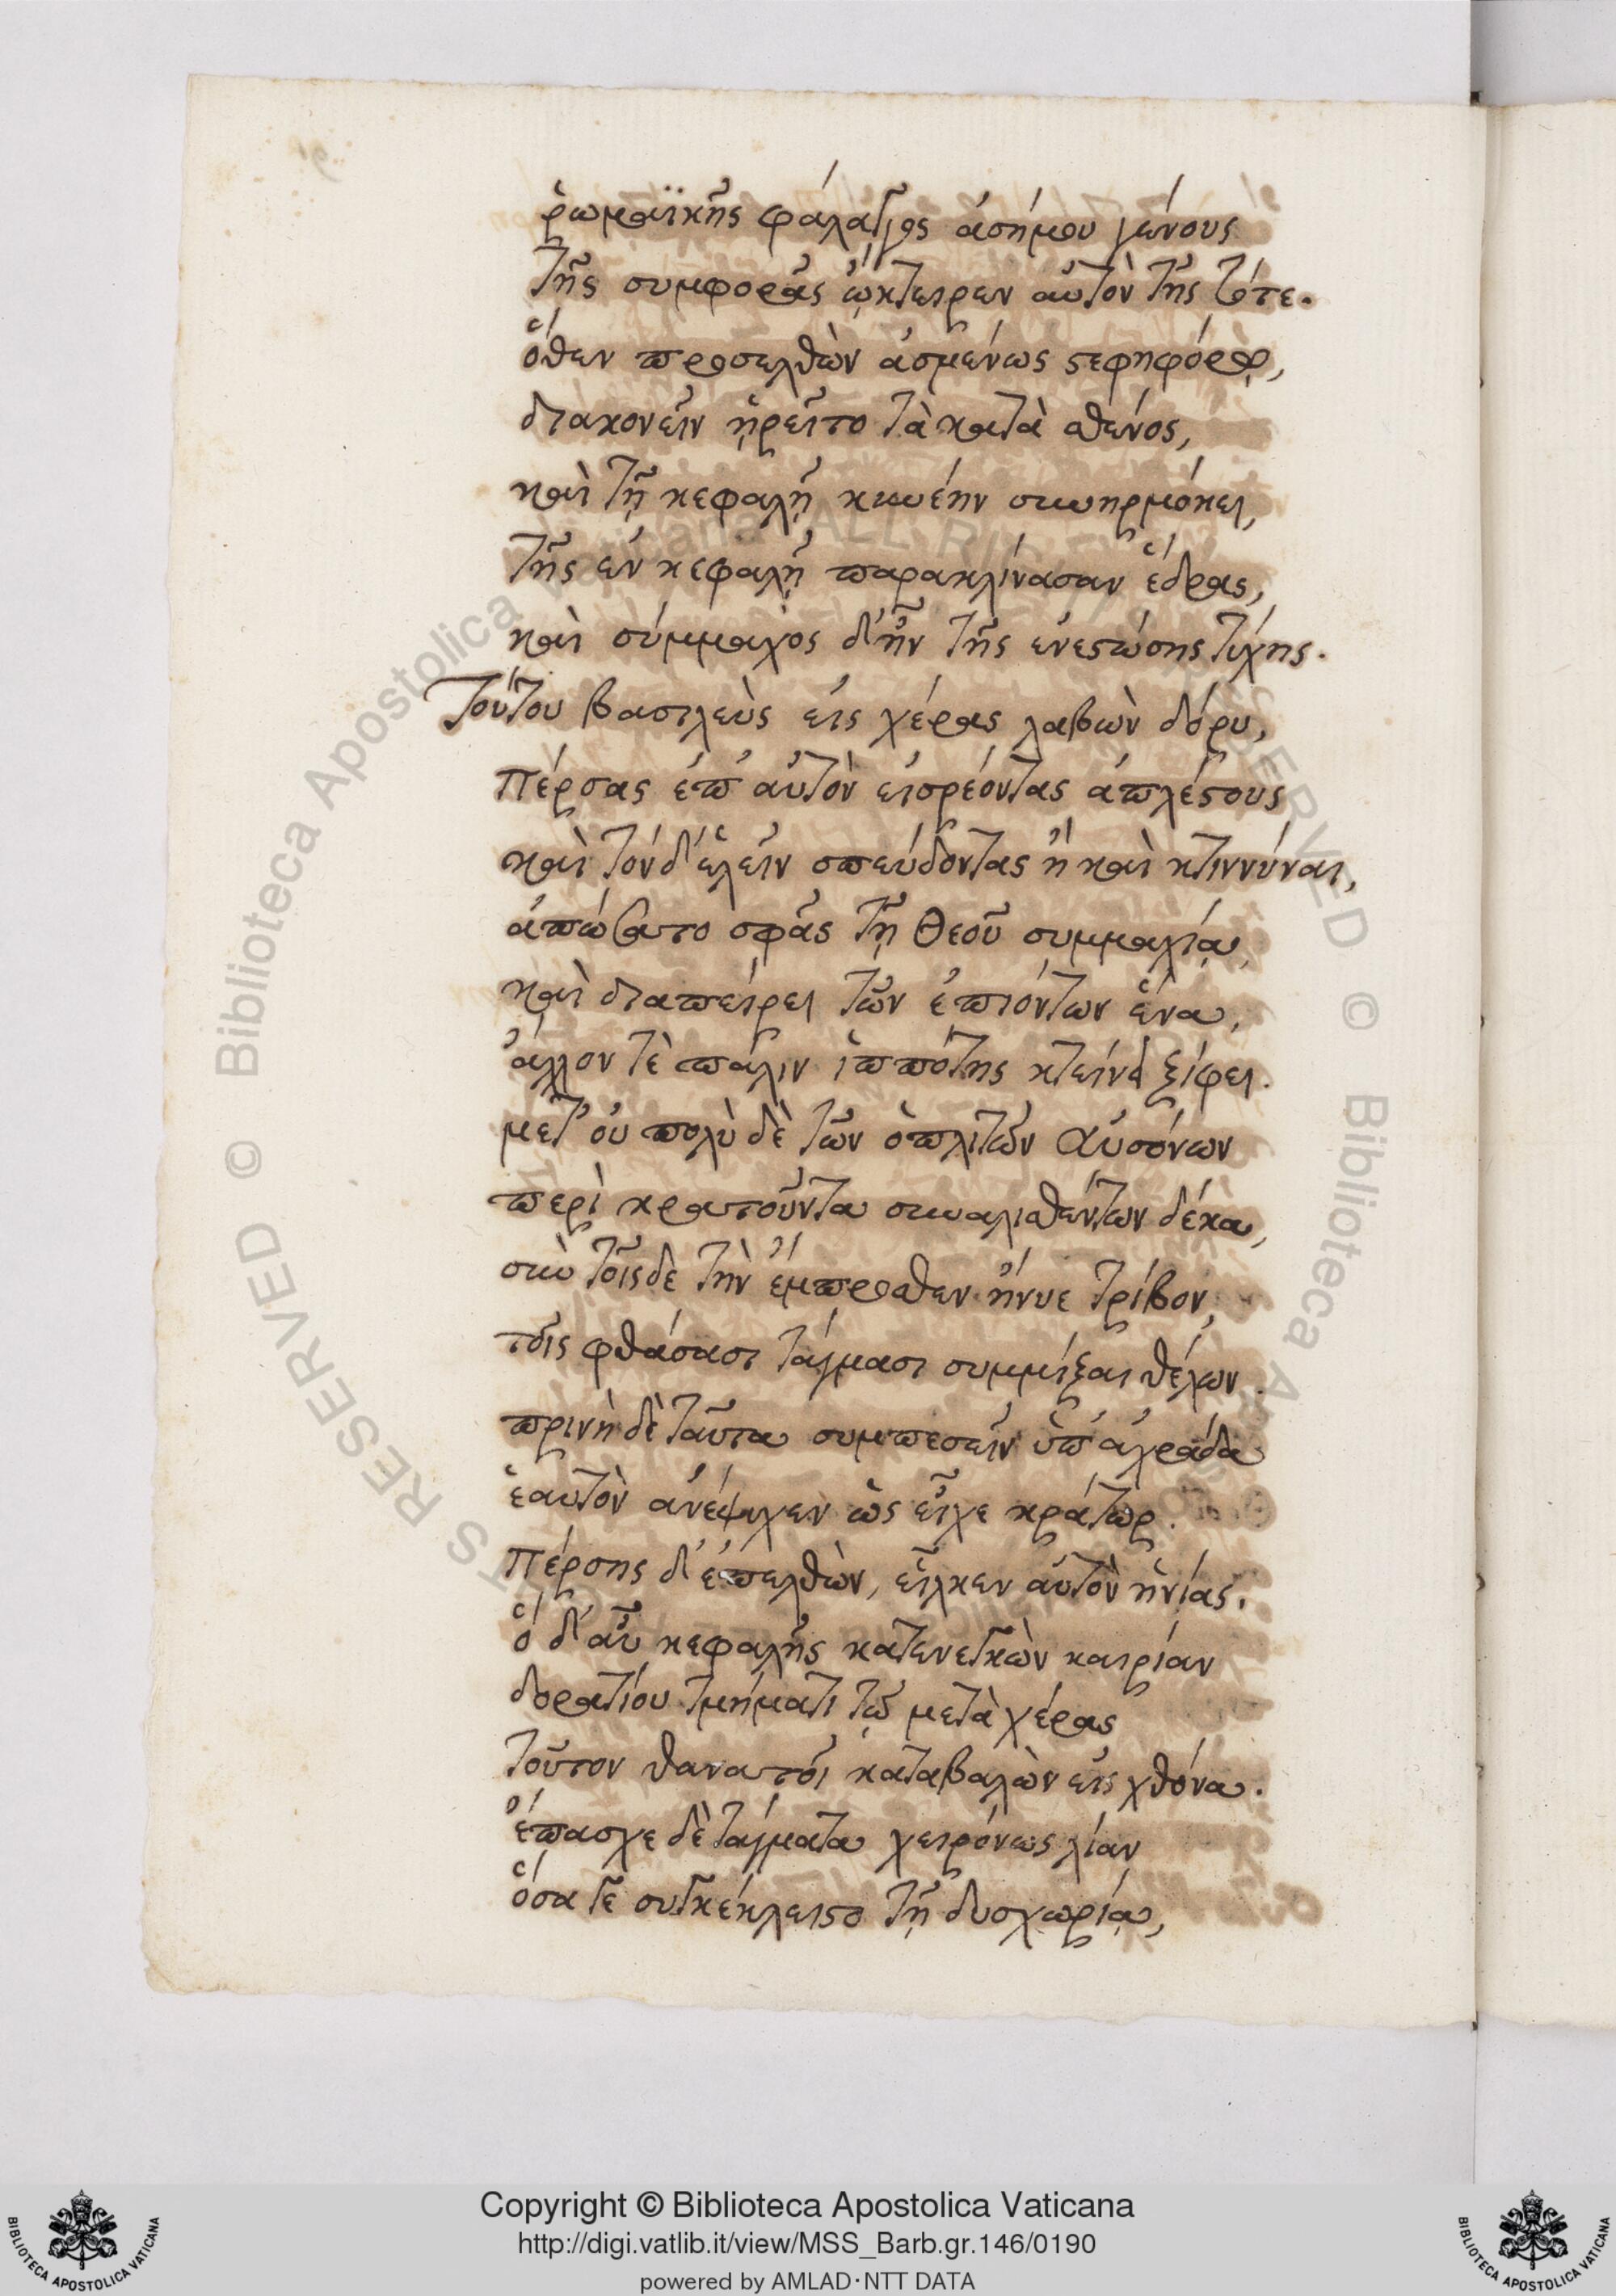 ῥωμαϊκῆς φάλαγγος ἀσήμου γένους
τῆς συμφορᾶς ᾤκτειρεν αὐτὸν τῆς τότε.
ὅθεν προσελθὼν ἀσμένως στεφηφόρῳ,
διακονεῖν ᾑρεῖτο τὰ κατὰ σθένος,
καὶ τῇ κεφαλῇ κυνέην συνηρμόκει,
τῆς ἐν κεφαλῇ παρακλίνασαν ἕδρας,
καὶ σύμμαχος δ' ἦν τῆς ἐνεστώσης τύχης.
Τούτου βασιλεὺς εἰς χέρας λαβὼν δόρυ,
πέρσας ἐπ' αὐτὸν εἰσρέοντας ἀπλέτους
καὶ τόνδ' ἑλεῖν σπεύδοντας ἢ καὶ κτιννύναι,
ἀπώσατο σφᾶς τῇ Θεοῦ συμμαχίᾳ,
καὶ διαπείρει τῶν ἐπιόντων ἕνα,
ἄλλον τὲ πάλιν ἱππότης κτείνει ξίφει.
μετ' οὐ πολὺ δὲ τῶν ὁπλιτῶν Αὐσόνων
περὶ κρατοῦντα συναλισθέντων δέκα,
σὺν τοῖσδε τὴν ἔμπροσθεν ἤνυε τρίβον,
τοῖς φθάσασι τάγμασι συμμίξαι θέλων.
πρινὴ δὲ ταῦτα συμπεσεῖν ὑπ' ἀχράδα
ἑαυτὸν ἀνέψυχεν ὡς εἶχε κράτωρ.
πέρσης δ' ἐπελθὼν, εἷλκεν αὐτὸν ἡνίας.
ὁ δ' αὖ κεφαλῆς κατενεγκὼν καιρίαν
δορατίου τμήματι τῷ μετὰ χέρας
τοῦτον θανατοῖ καταβαλὼν εἰς χθόνα.
ἔπασχε δὲ τάγματα χειρόνως λίαν
ὅσα τε συγκέκλειστο τῇ δυσχωρίᾳ,
© Biblioteca Apostolica Vaticana ALL RIGHTS RESERVED
Copyright © Biblioteca Apostolica Vaticana
http://digi.vatlib.it/view/MSS_Barb.gr.146/0190
powered by AMLAD·NTT DATA
BIBLIOTECA APOSTOLICA VATICANA
BIBLIOTECA APOSTOLICA VATICANA